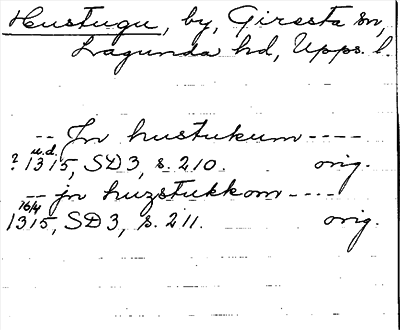 Hustugu, by, Giresta sn,
Lagunda hd, Upps. l.
-- Jn hustukum ----
? u.d. 1315, SD 3, s. 210. orig.
-- jn huzstukkom ----
16/4 1315, SD 3, s. 211. orig.